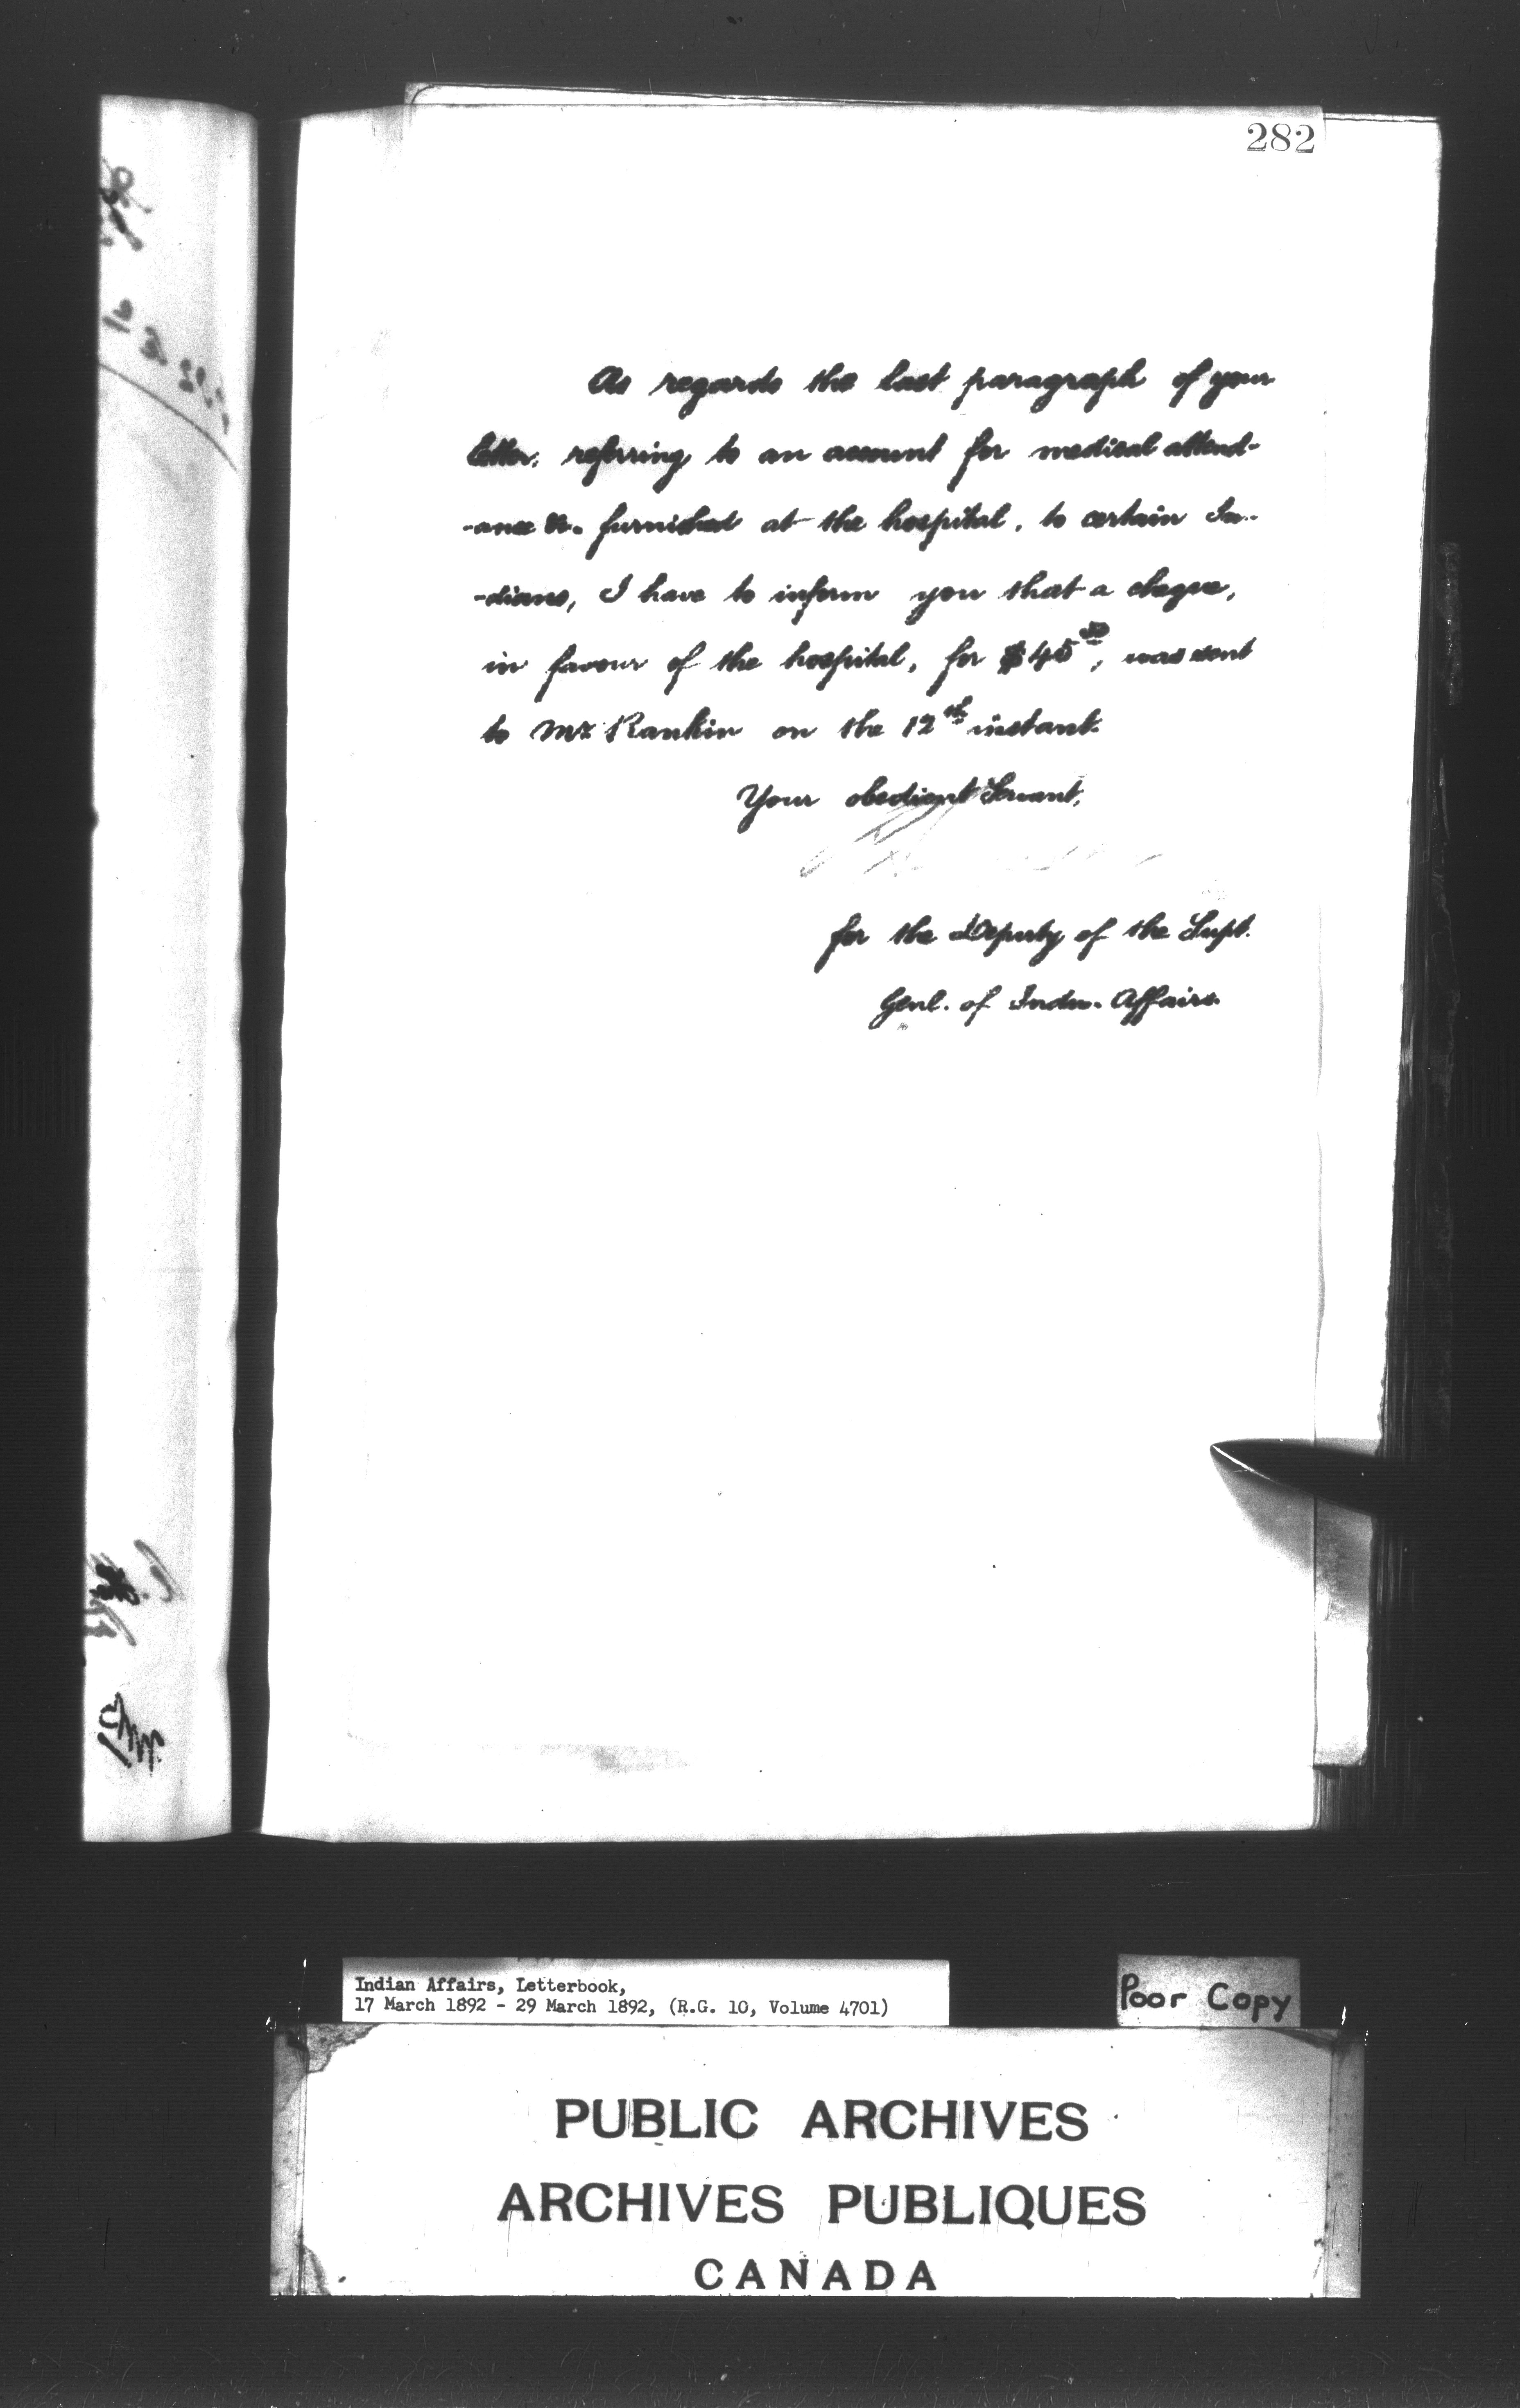 282
As regards the last paragraph of your
letter, referring to an account for medical attend-
-ance &c. furnished at the hospital, to certain In-
-dians, I have to inform you that a cheque,
in favour of the hospital, for $45 50, was sent
to Mr. Rankin on the 12th instant.
Your obedient Servant,
for the Deputy of the Supt.
Genl. of Indn. Affairs.
Indian Affairs, Letterbook,
17 March 1892 - 29 March 1892, (R.G. 10, Volume 4701)
Poor Copy
PUBLIC ARCHIVES
ARCHIVES PUBLIQUES
CANADA